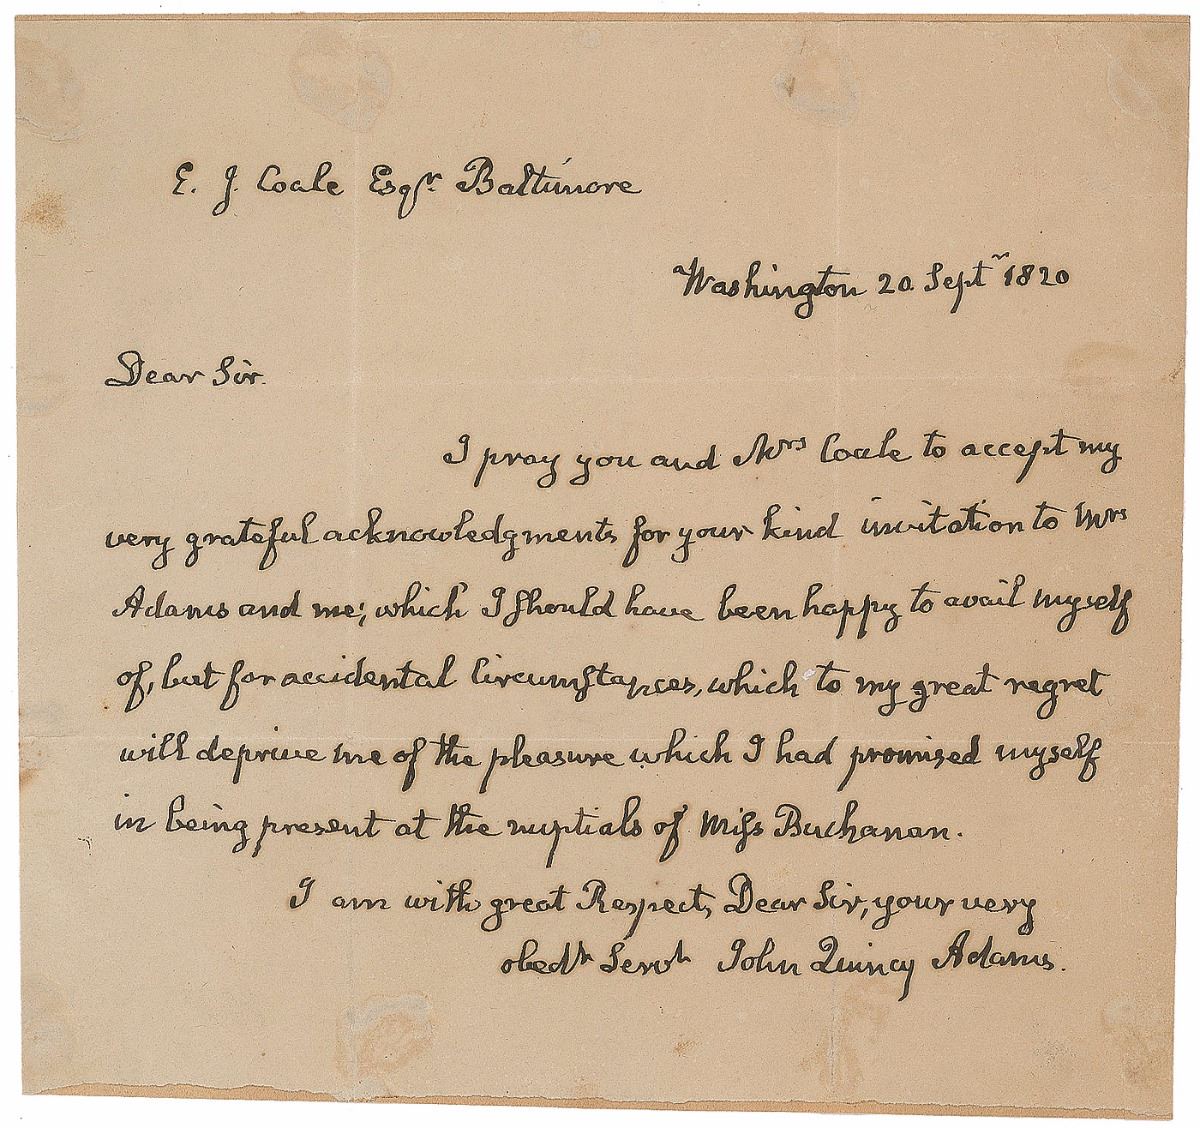 E. J. Coale Esqr. Baltimore
Washington 20 Septr 1820
Dear Sir.
I pray you and Mrs Coale to accept my
very grateful acknowledgments for your kind invitation to Mrs
Adams and me; which I should have been happy to avail myself
of, but for accidental Circumstances, which to my great regret
will deprive me of the pleasure which I had promised myself
in being present at the nuptials of Miss Buchanan.
I am with great Respect, Dear Sir, your very
obedt Servt John Quincy Adams.